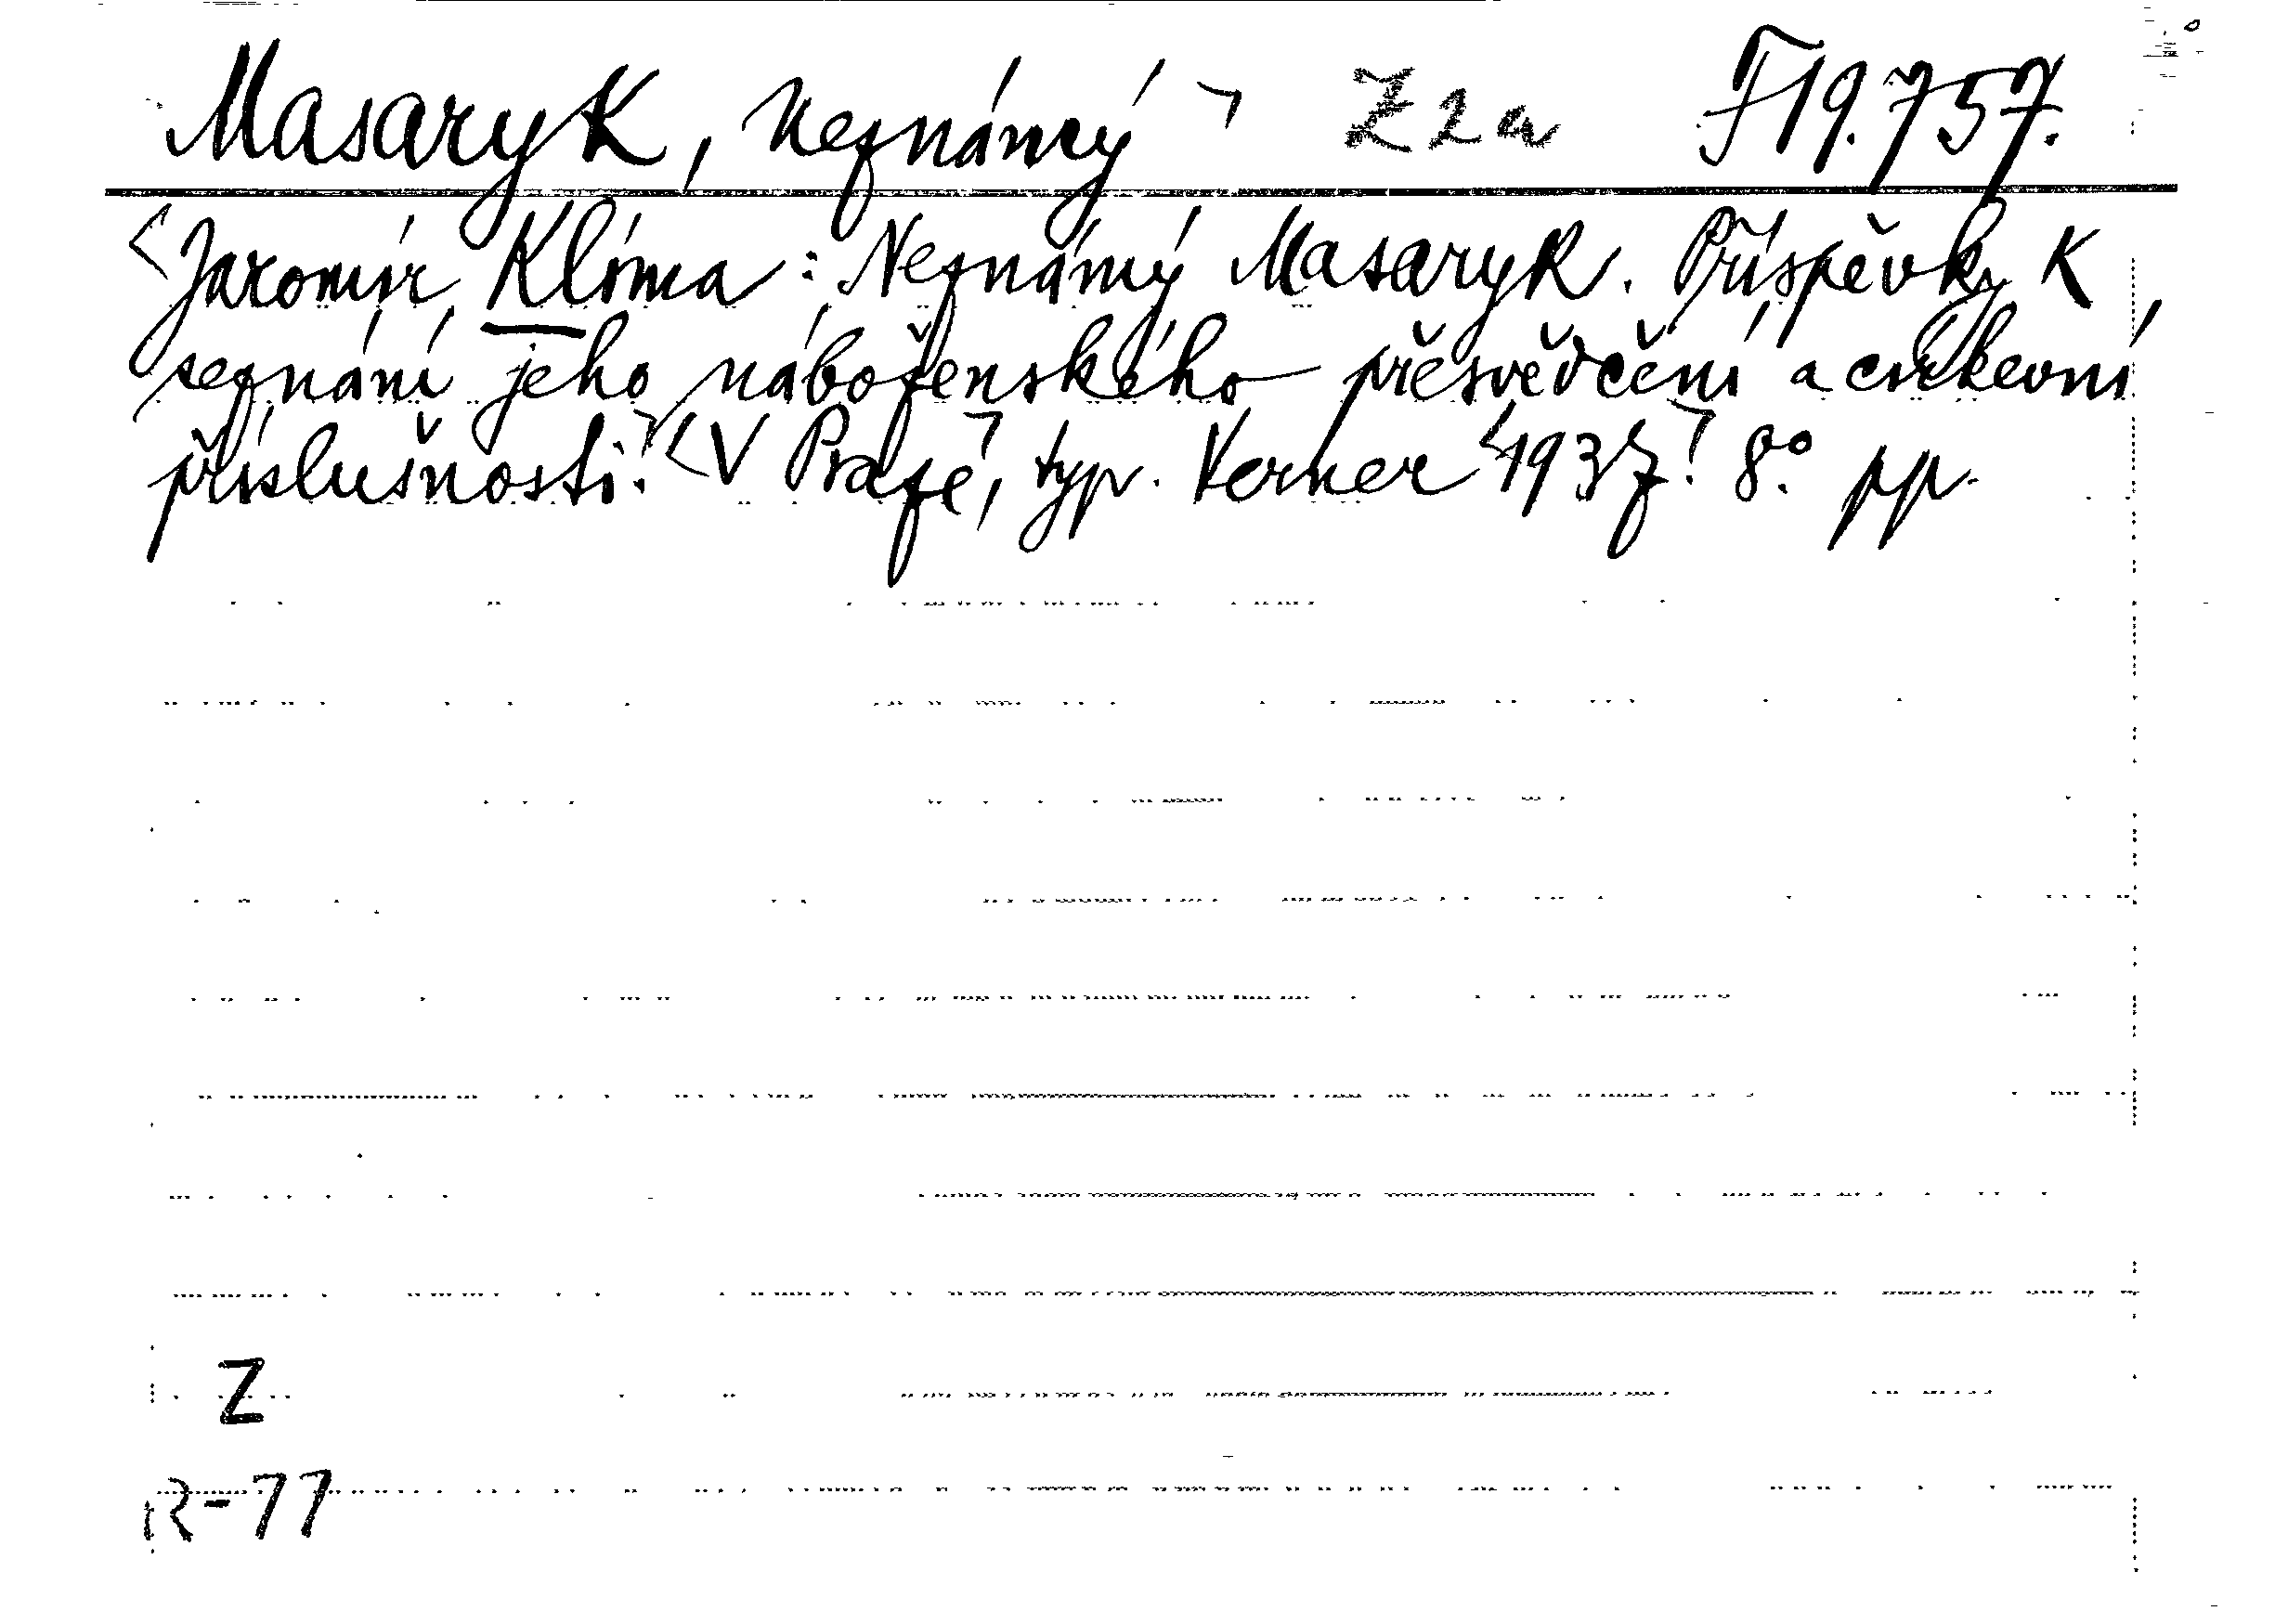 Masaryk, neznámý ¬ Z 2 a F 19.757.
<Jaromír Klíma: Neznámý Masaryk. Příspěvky k
seznání jeho náboženského přesvědčení a církevní
příslušnosti.¬ <V Praze¬, typ. Verner <1937¬. 8° pp.
Z
R-77